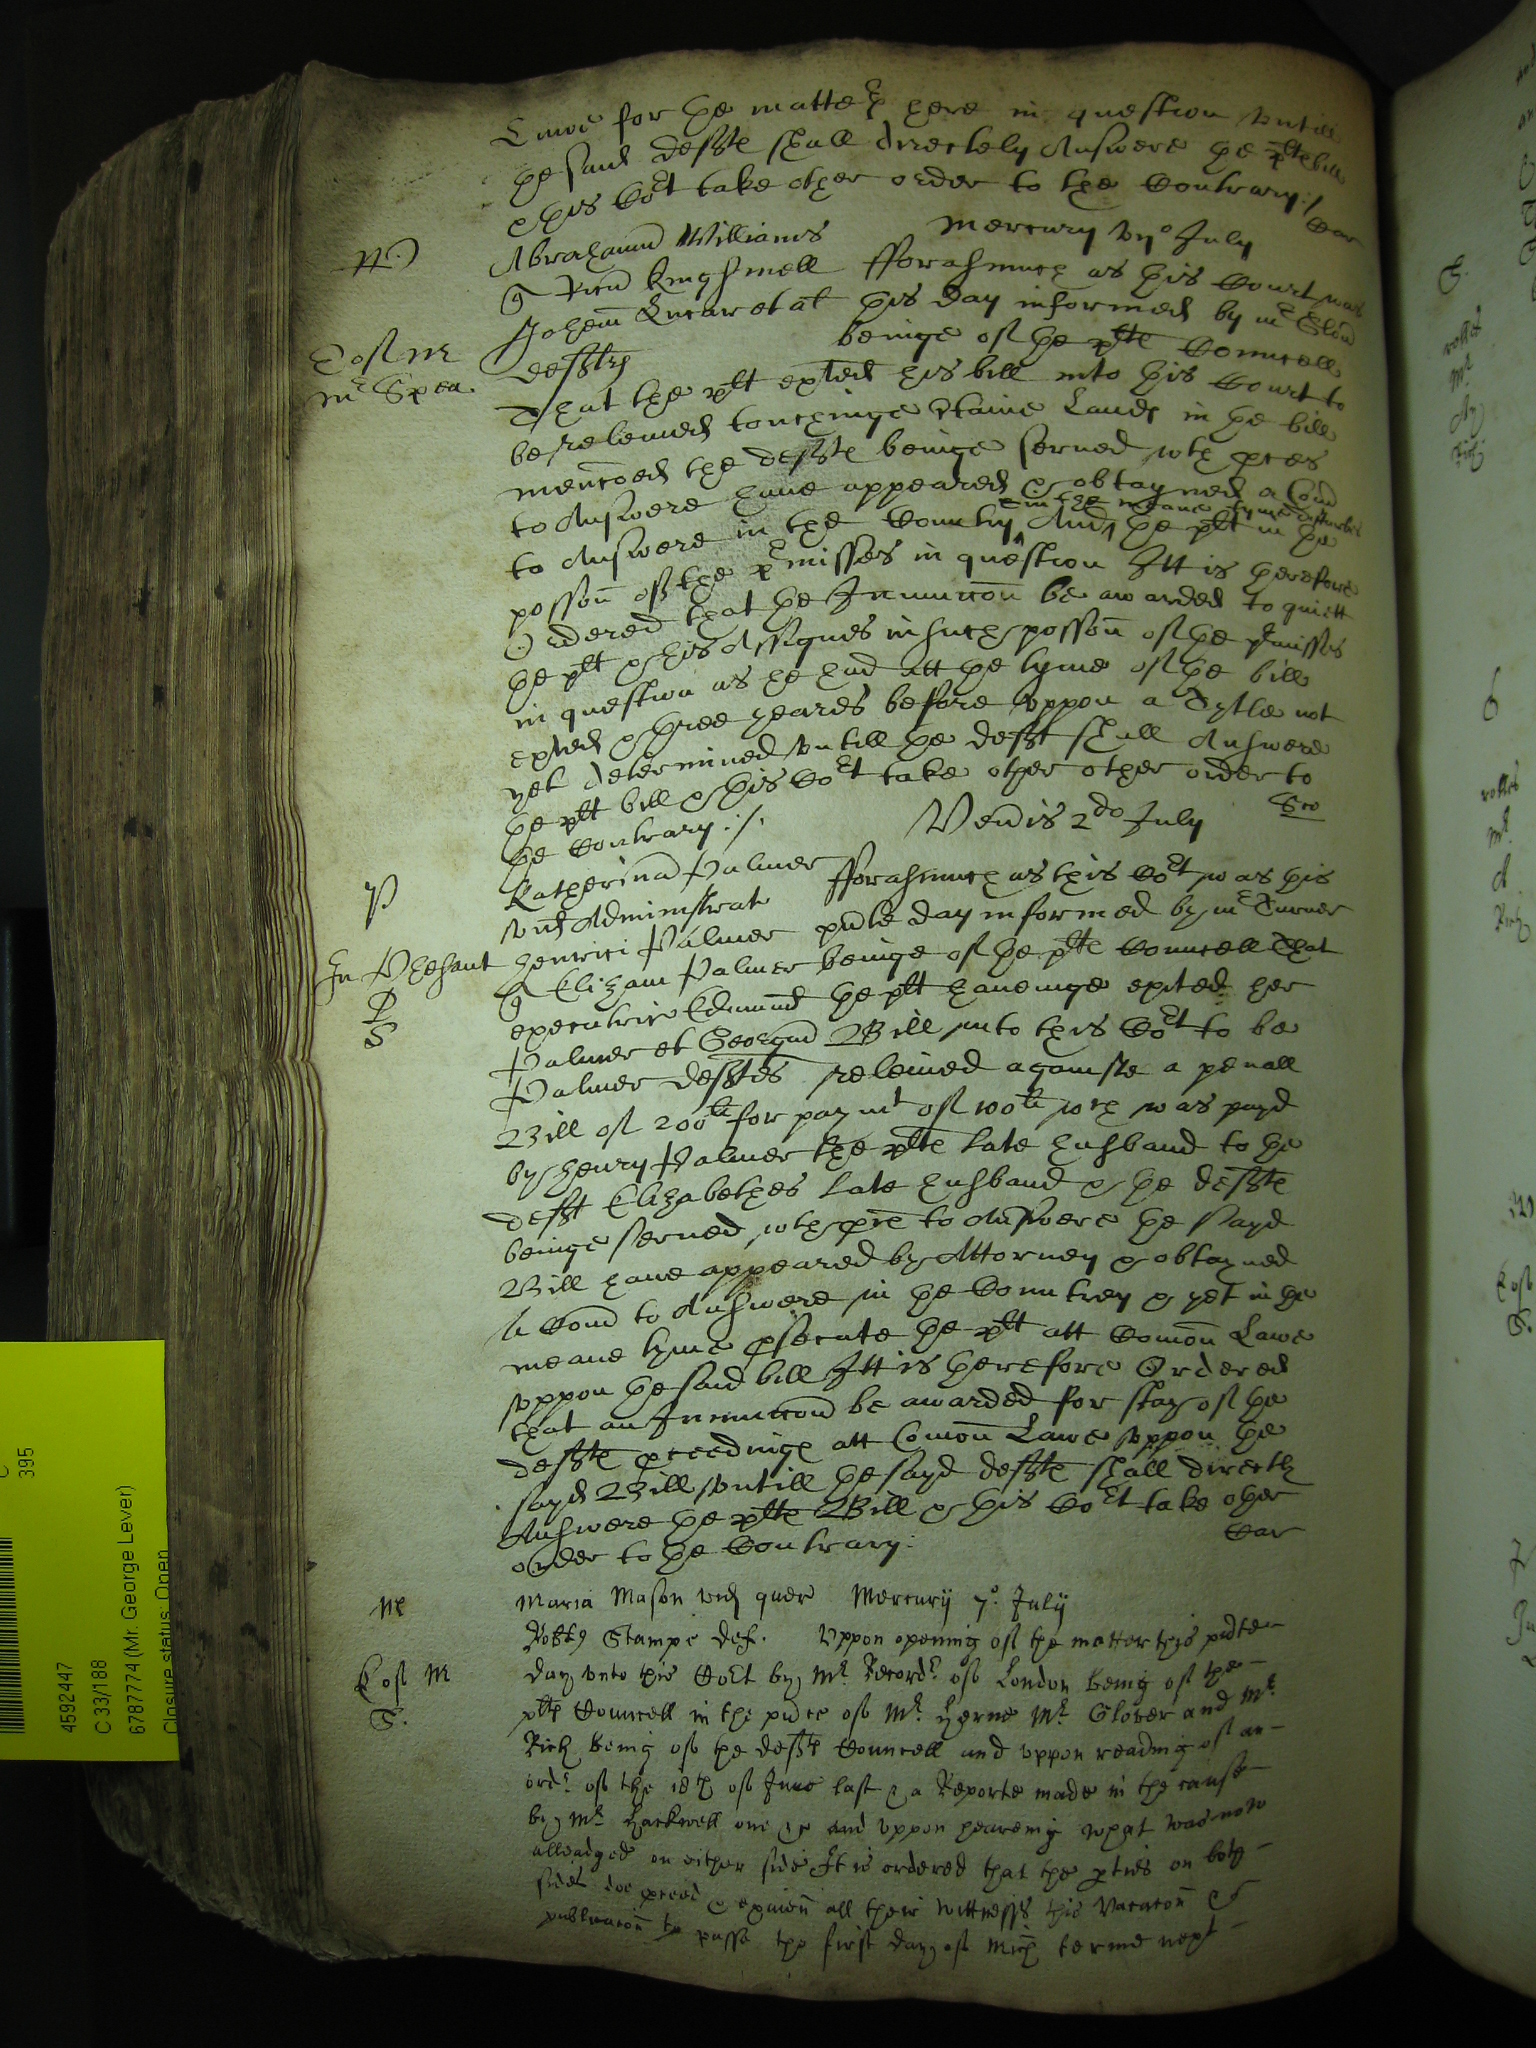 Lawe for the matter here in question untill
the said defte shall directely Answere the plte bill
& this Cort take other order to the Contrary /
Mercury vijo July
W
Abrahamu Williams
q Ricu Kingsmell fforasmuch as this Court was
Johem et al this day informed by mr
deftes beinge of the plte Councell
mr Spea
That the plt exhted his bill into this Court to
be releived touchinge Ctaine Lands in the bill
menconed the defte beinge served wth pces
to Answere have appeared & obtayned a Comd
in the meane tyme
to Answere in the Countrey And the plt in the
possion of the pmisses in question Itt is therefore
Ordered that the Iniunccon be awarded to quiett
the plt & his Assignes in such possion of the pmisses
in question as he had att the tyme of the bill
exhted & three yeares before uppon a Tytle not
yet determined untill the deft shall Answere
the plt bill & this Cort take other other order to
the Contrary ./.
Veneris 2do July
P
Katherina Palmer fforasmuch as this Cort was this
vid Administrat pnte day informed by mr Turner
henrici Palmer beinge of the plte Councell That
q Elizam Palmer the plt haveinge exited her
executric Edmund Bill into this Cort to be
Palmer et Georgiu releived againste a penall
Palmer deftes
Bill of 200li for paymt of 100li wch was payd
by henry Palmer the plte late husband to the
deft Elizabethes late husband & the defte
beinge served wth pces to Answere the sayd
Bill have appeared by Attorney & obtayned
A Comd to Answere in the Countrey & yet in the
meane tyme psecute the plt att Comon Lawe
uppon the said bill Itt is therefore Ordered
that an Iniunccon be awarded for stay of the
defte pceedinge att Comon Lawe uppon the
sayd Bill untill the sayd defte shall directly
Answere the plte Bill & this Cort take other
order to the Contrary.
M
Maria Mason vid quer Mercurij 7o July
Robtu Stampe def. Uppon opening of the matter this pnte
day unto this Cort by Mr Recordr of London being of the
plte Councell in the pnce of Mr Herne Mr Glover and Mr
Rich being of the defte Councell and uppon reading of an
ordr of the 18th of June last & a Reporte made in the cause
by Mr Hackwell one &c and uppon heareing what was now
alleadged on either side It is ordered that the pties on both
sides doe pceed & examin all their wittnesses this Vacacon &
publicacon to passe the first day of Mich terme next
395
4592447
C 33/188
6787774 (Mr. George Lever)
Closure status: Open